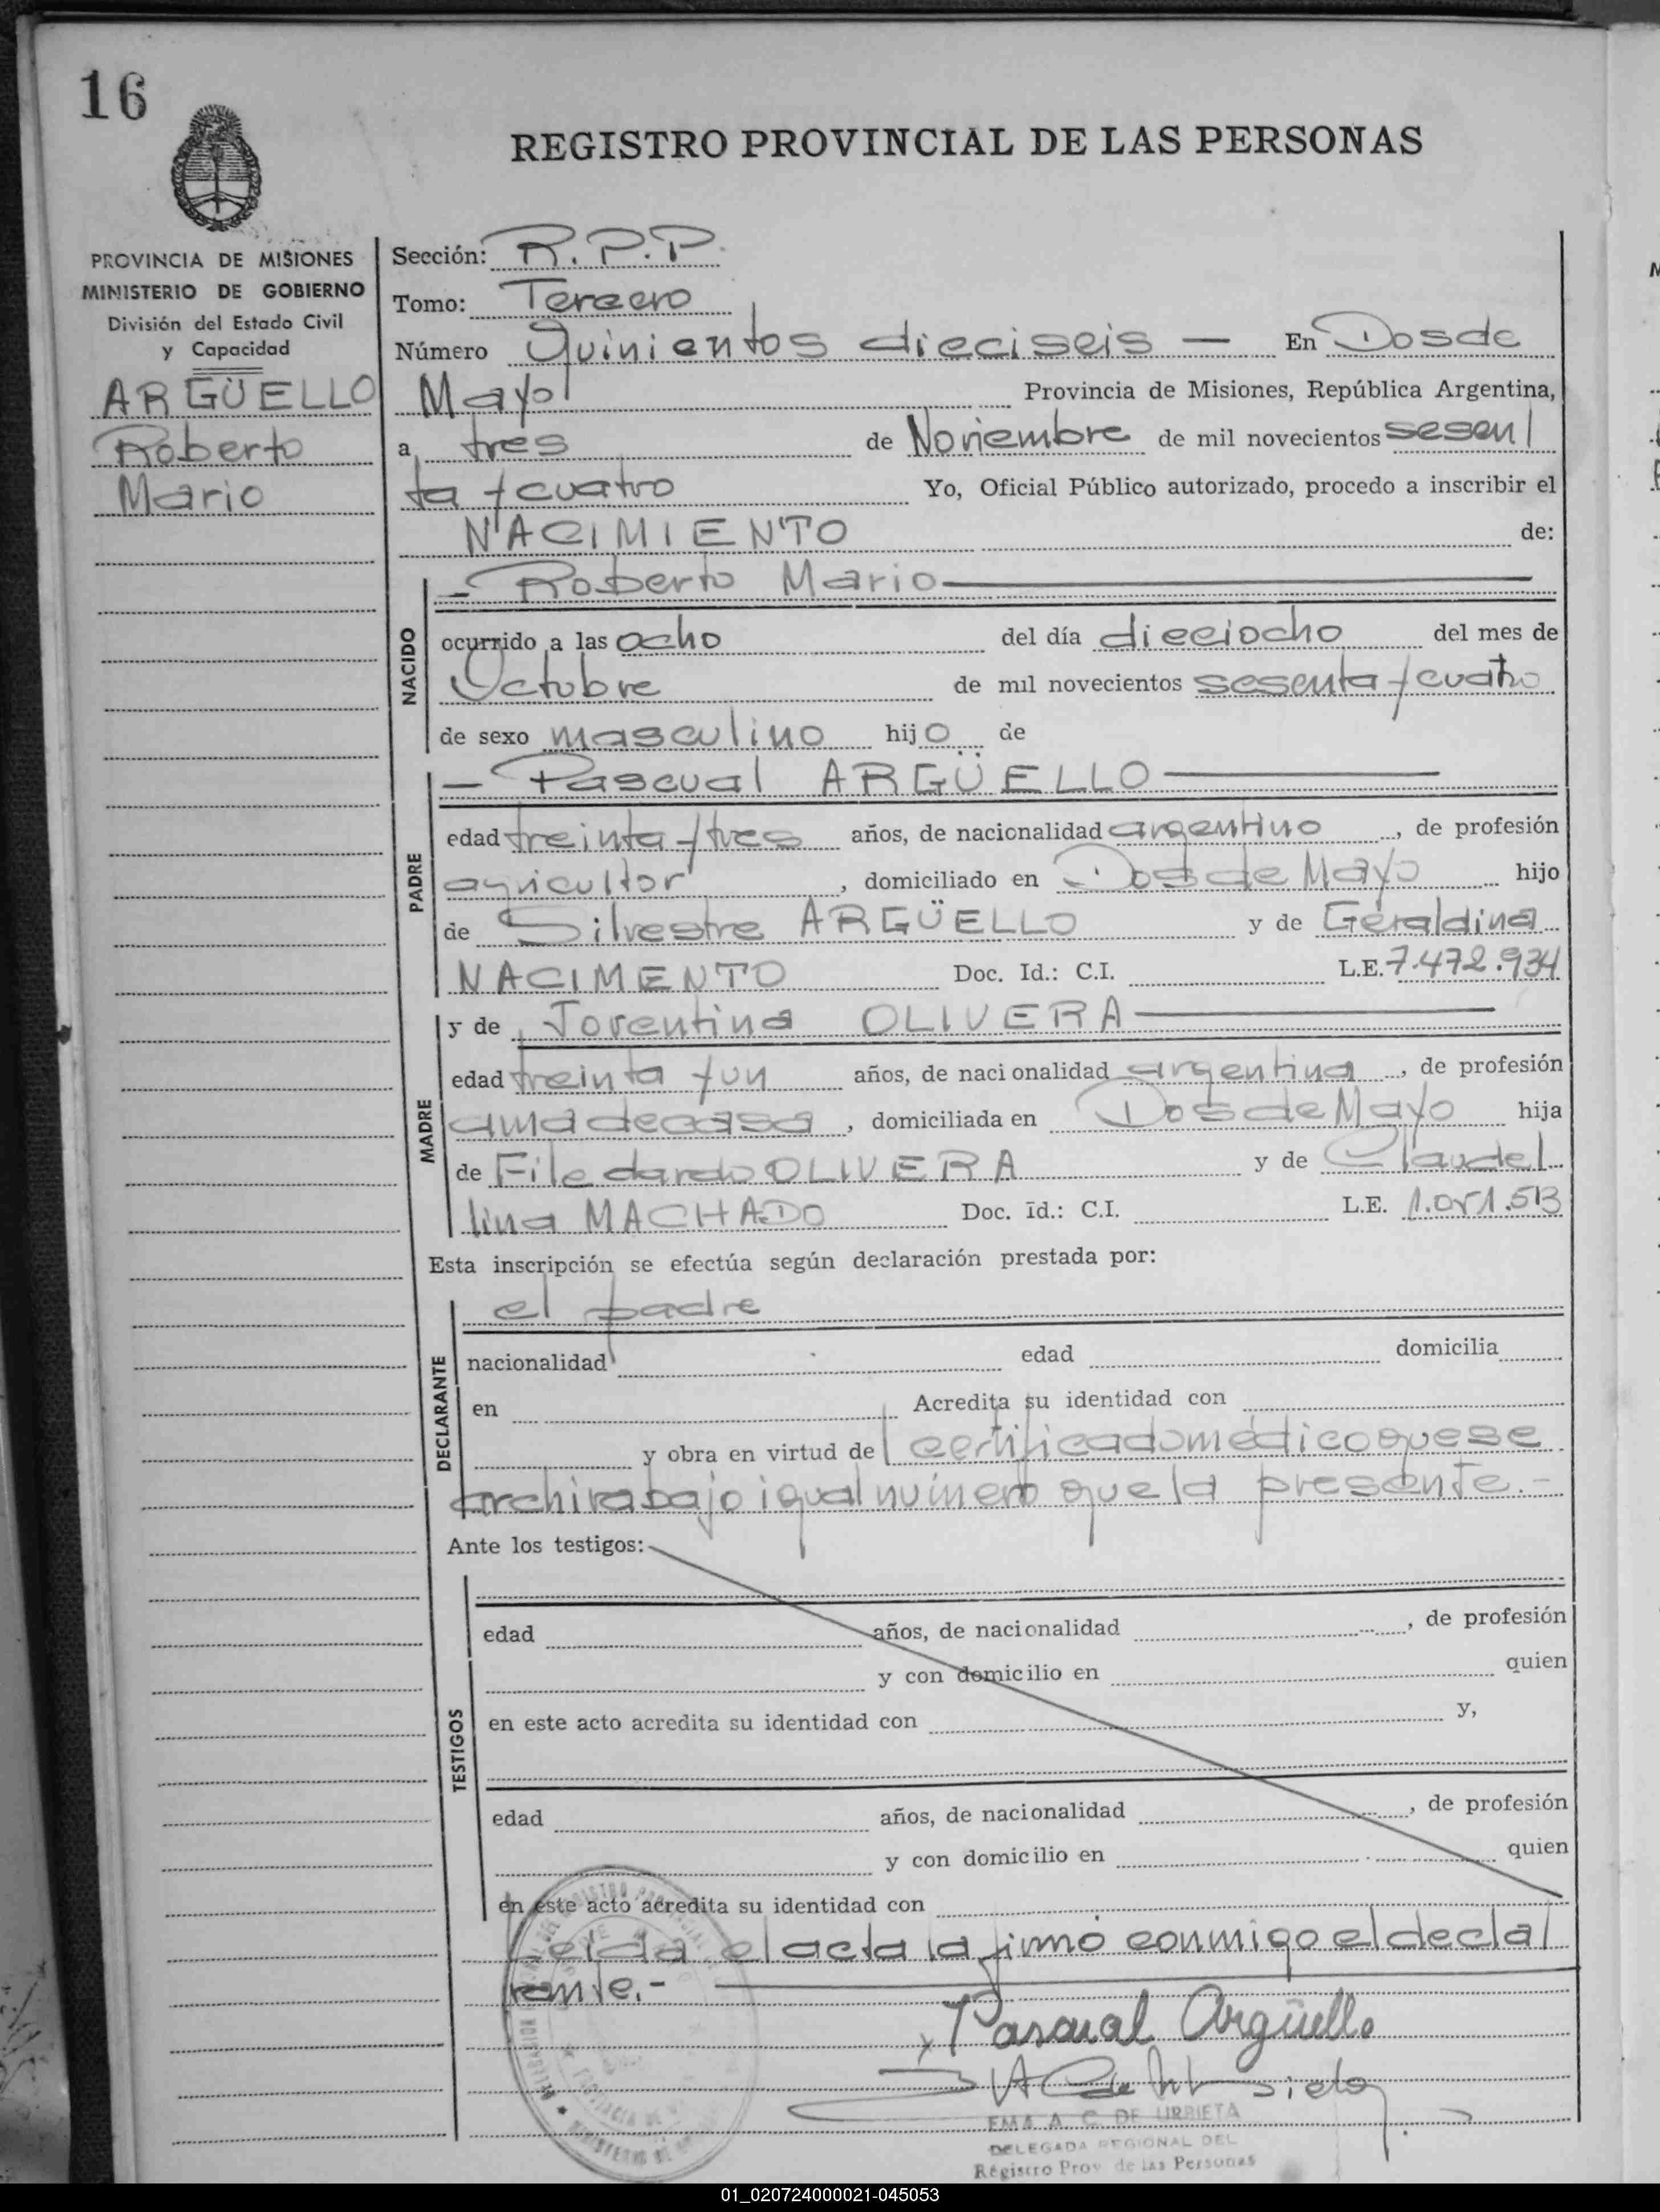 16
REGISTRO PROVINCIAL DE LAS PERSONAS
PROVINCIA DE MISIONES
MINISTERIO DE GOBIERNO
División del Estado Civil
y Capacidad
ARGÜELLO
Roberto
Mario
Sección: R.P.P.
Tomo: Tercero
Número Quinientos dieciseis — En Dos de
Mayo Provincia de Misiones, República Argentina,
a tres de Noviembre de mil novecientos sesen
ta y cuatro Yo, Oficial Público autorizado, procedo a inscribir el
NACIMIENTO de:
NACIDO
— Roberto Mario —
ocurrido a las ocho del día dieciocho del mes de
Octubre de mil novecientos sesenta y cuatro
de sexo masculino hijo de
PADRE
— Pascual ARGÜELLO —
edad treinta y tres años, de nacionalidad argentino, de profesión
agricultor, domiciliado en Dos de Mayo hijo
de Silvestre ARGÜELLO y de Geraldina
NACIMENTO Doc. Id.: C.I. L.E. 7.472.934
MADRE
y de Jorentina OLIVERA —
edad treinta y un años, de nacionalidad argentina, de profesión
ama de casa, domiciliada en Dos de Mayo hija
de File dardo OLIVERA y de Claudel
lina MACHADO Doc. Id.: C.I. L.E. 1.051.513
Esta inscripción se efectúa según declaración prestada por:
DECLARANTE
el padre
nacionalidad edad domicilia
en Acredita su identidad con
y obra en virtud de certificado médico que se
archiva bajo igual número que la presente.-
Ante los testigos:
TESTIGOS
edad años, de nacionalidad , de profesión
y con domicilio en quien
en este acto acredita su identidad con y,
edad años, de nacionalidad , de profesión
y con domicilio en quien
en este acto acredita su identidad con
Leida el acta la firmó conmigo el decla
rante.-
Pascual Argüello
EMA A. C. DE URBIETA
DELEGADA REGIONAL DEL
Registro Prov. de las Personas
01_020724000021-045053